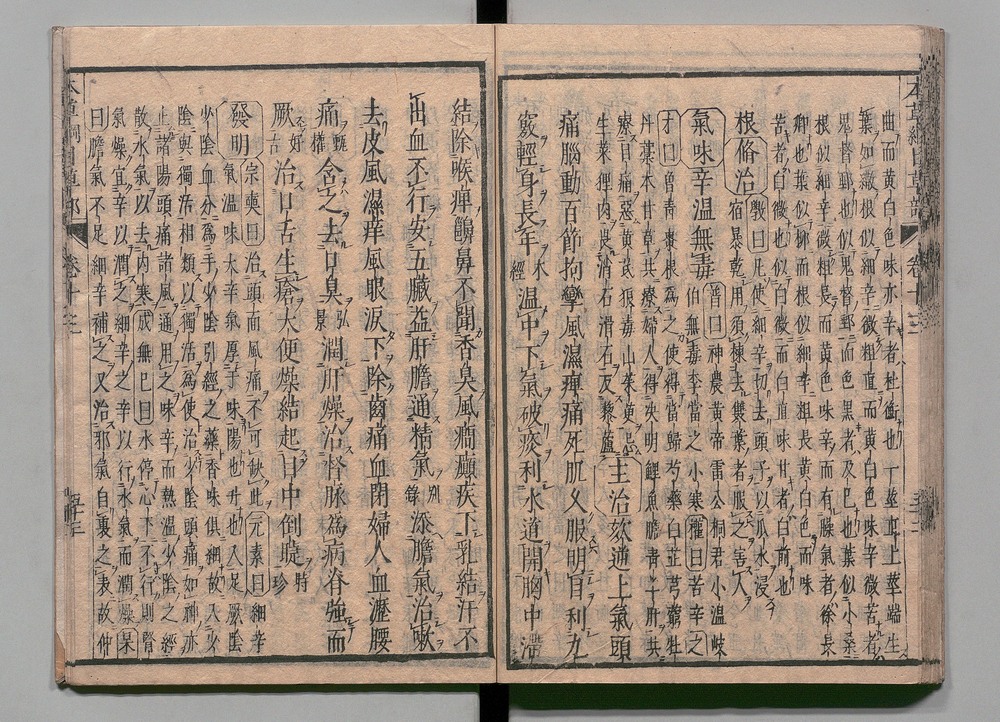 本草綱目草部 卷十三
曲而黃白色味亦辛者杜衡也一莖直上莖端生
葉如繖根似細辛微粗直而黃白色味辛微苦者
鬼督郵也似鬼督郵而色黑者及已也葉似小桑
根似細辛微粗長而黃色味辛而有臊氣者徐長
卿也葉似柳而根似細辛粗長黃白色而味
苦者白微也似白微而白直味甘者白前也
根脩治斅曰凡使細辛切去頭子以瓜水浸一
宿暴乾用須揀去雙葉者服之害人
氣味辛溫無毒普曰神農黃帝雷公桐君小溫岐
伯無毒李當之小寒權曰苦辛之
才曰曾青棗根為之使得當歸芍藥白芷芎藭牡
丹藁本甘草共療婦人得決明鯉魚膽青羊肝共
療目痛惡黃芪狼毒山茱萸忌
生菜狸肉畏消石滑石反藜蘆主治欬逆上氣頭
痛腦動百節拘攣風濕痺痛死肌久服明目利九
竅輕身長年本經溫中下氣破痰利水道開胸中滯
結除喉痺齆鼻不聞香臭風癇癲疾下乳結汗不
出血不行安五臟益肝膽通精氣別錄添膽氣治嗽
去皮風濕痒風眼淚下除齒痛血閉婦人血瀝腰
痛甄權含之去口臭弘景潤肝燥治督脉為病脊強而
厥好古治口舌生瘡大便燥結起目中倒睫時珍
發明宗奭曰治頭面風痛不可缺此元素曰細辛
氣溫味大辛氣厚于味陽也升也入足厥陰
少陰血分為手少陰引經之藥香味俱細故入少
陰與獨活相類以獨活為使治少陰頭痛如神亦
止諸陽頭痛諸風通用之味辛而熱溫少陰之經
散水氣以去內寒成無已曰水停心下不行則腎
氣燥宜辛以潤之細辛之辛以行水氣而潤燥杲
曰膽氣不足細辛補之又治邪氣自裏之表故仲
本草綱目草部 卷十三